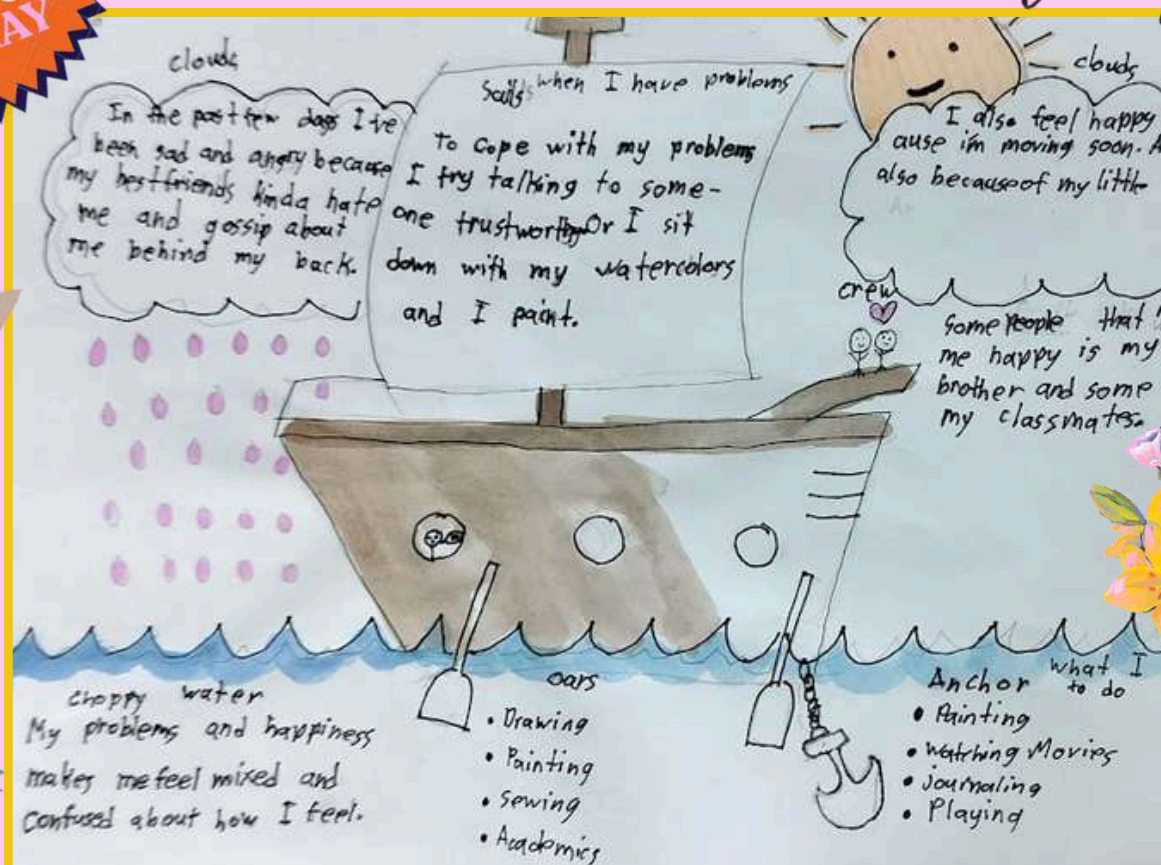 AY
clouds
In the past few days I've
been sad and angry because
my bestfriends kinda hate
me and gossip about
me behind my back.
Sails when I have problems
To cope with my problems
I try talking to some-
one trustworthy Or I sit
down with my watercolors
and I paint.
clouds
I also feel happy
ause i'm moving soon. A
also because of my little
crew
some people that
me happy is my
brother and some
my classmates.
choppy water
My problems and happiness
makes me feel mixed and
confused about how I feel.
oars
• Drawing
• Painting
• Sewing
• Academics
Anchor what I
to do
• Painting
• Watching Movies
• journaling
• Playing